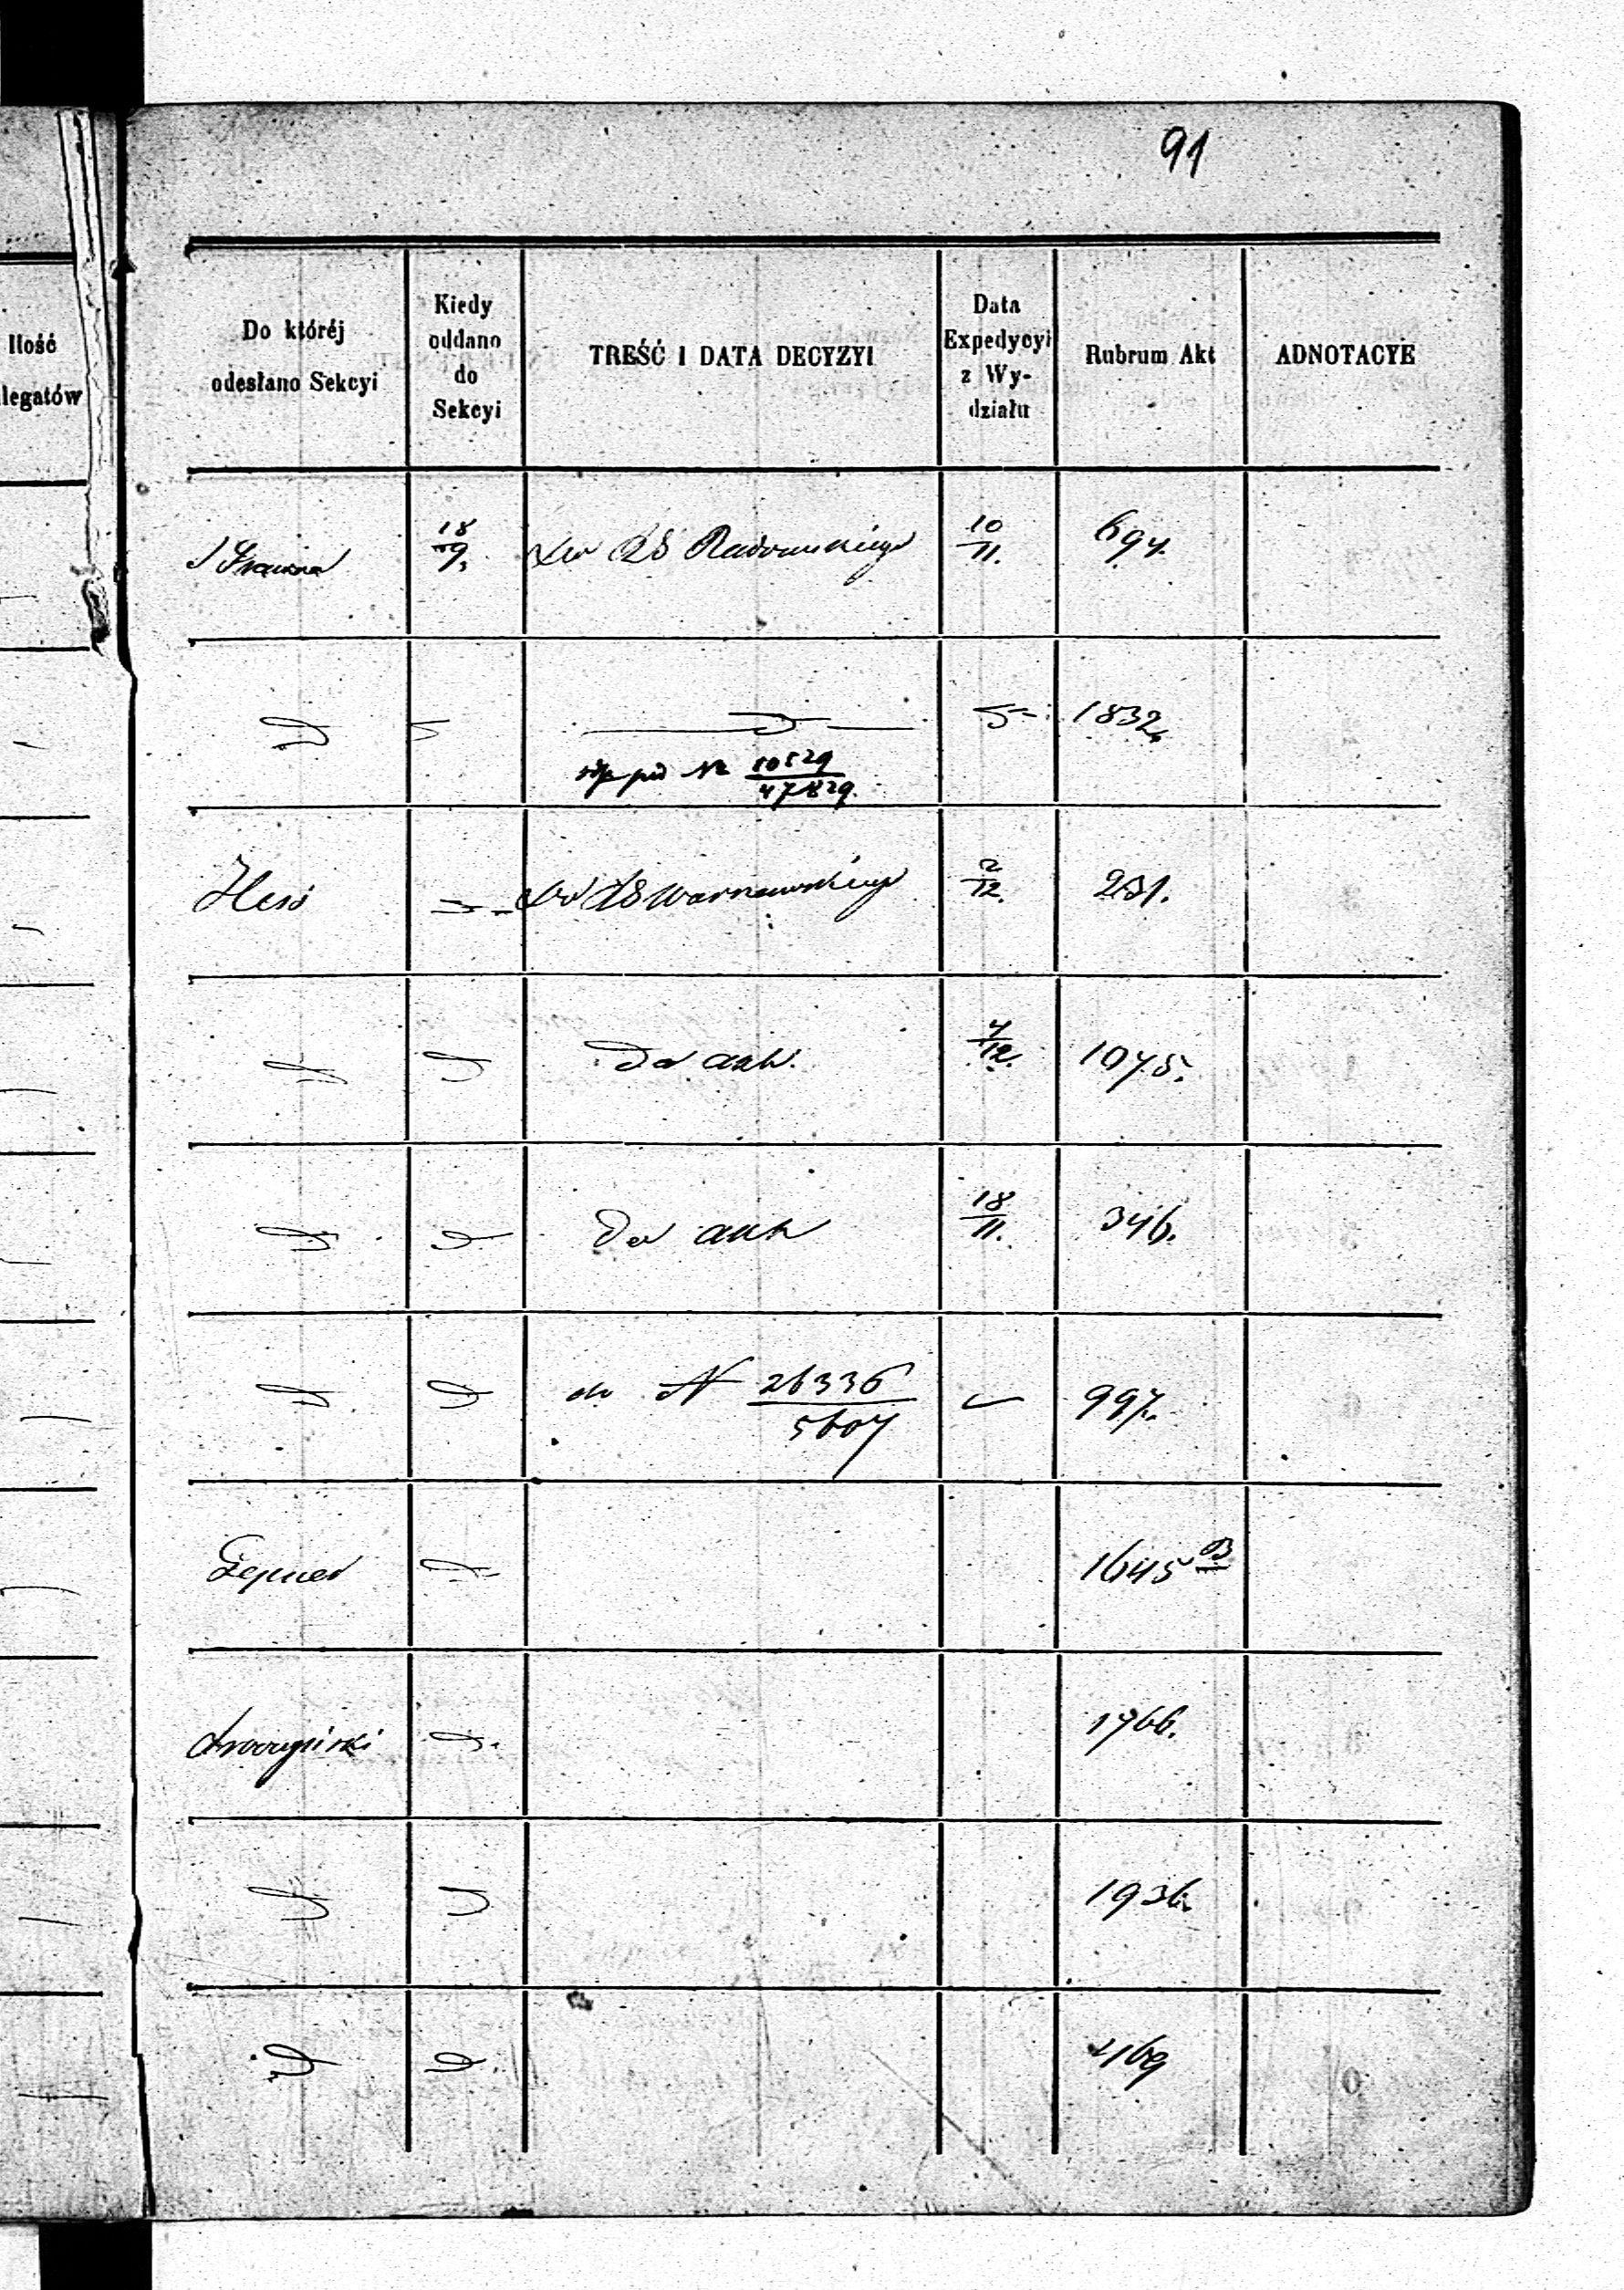 91
Ilość
legatów
Do któréj
odesłano Sekcyi
Kiedy
oddano
do
Sekcyi
TREŚĆ I DATA DECYZYI
Data
Expedycyi
z Wy-
działu
Rubrum Akt
ADNOTACYE
18/9. Do RS Radomskiego 10/11. 694.
1832.
pod № 10529/47829.
Hess Do RS Warszawskiego 2/12. 231.
Do akt. 4/12. 1075.
Do akt 18/11. 346.
do N 26336/5607 997.
Lepner 1645 B
1766.
1936.
2169